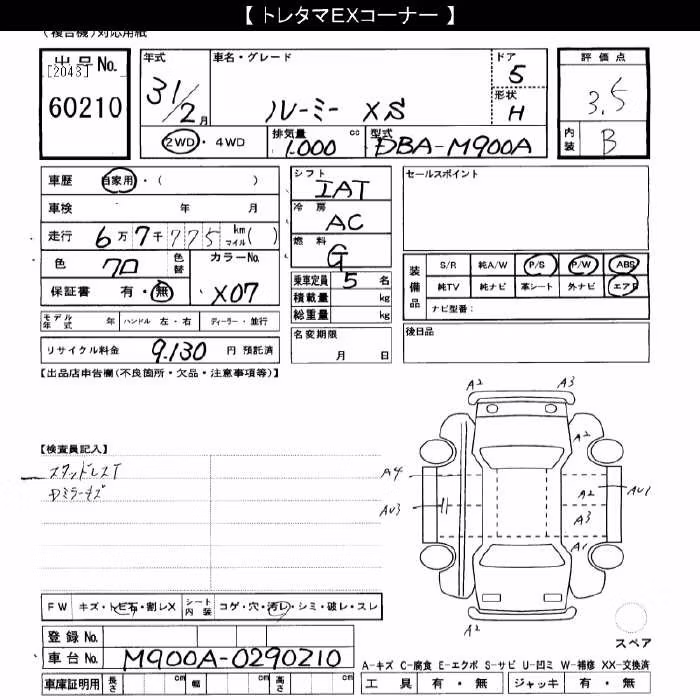 【 トレタマEXコーナー 】
(複合機)対応用紙
出品No.
[2043]
60210
年式
31/2月
車名・グレード
ルーミー XS
ドア
5
形状
H
2WD・4WD
排気量 1.000 cc
型式 DBA-M900A
評価点
3.5
内装 B
車歴 自家用・( )
車検 年 月
走行 6万7千775 km マイル( )
色 クロ 色替
カラーNo. X07
保証書 有・無
シフト IAT
冷房 AC
燃料 G
乗車定員 5 名
積載量 kg
総重量 kg
セールスポイント
装備品
S/R 純A/W P/S P/W ABS
純TV 純ナビ 革シート 外ナビ エアB
ナビ型番:
モデル年式 年 ハンドル 左・右 ディーラー・並行
名変期限
月 日
後日品
リサイクル料金 9.130 円 預託済
【出品店申告欄(不良箇所・欠品・注意事項等)】
【検査員記入】
スタッドレスT
Dミラーキズ
A2 A3
A2
A4
A2 AU1
AU3
A3
A1
A2
スペア
FW キズ・トビ石・割レX シート内装 コゲ・穴・汚レ・シミ・破レ・スレ
登録 No.
車台 No. M900A-0290210
車庫証明用 長さ cm 幅 cm 高さ cm
A-キズ C-腐食 E-エクボ S-サビ U-凹ミ W-補修 XX-交換済
工具 有・無 ジャッキ 有・無